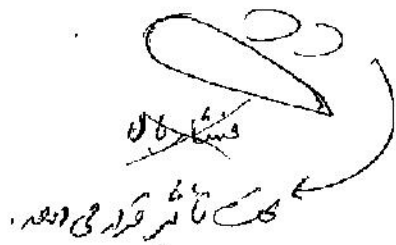 فشار بالا
تحت تأثیر قرار می‌دهد.